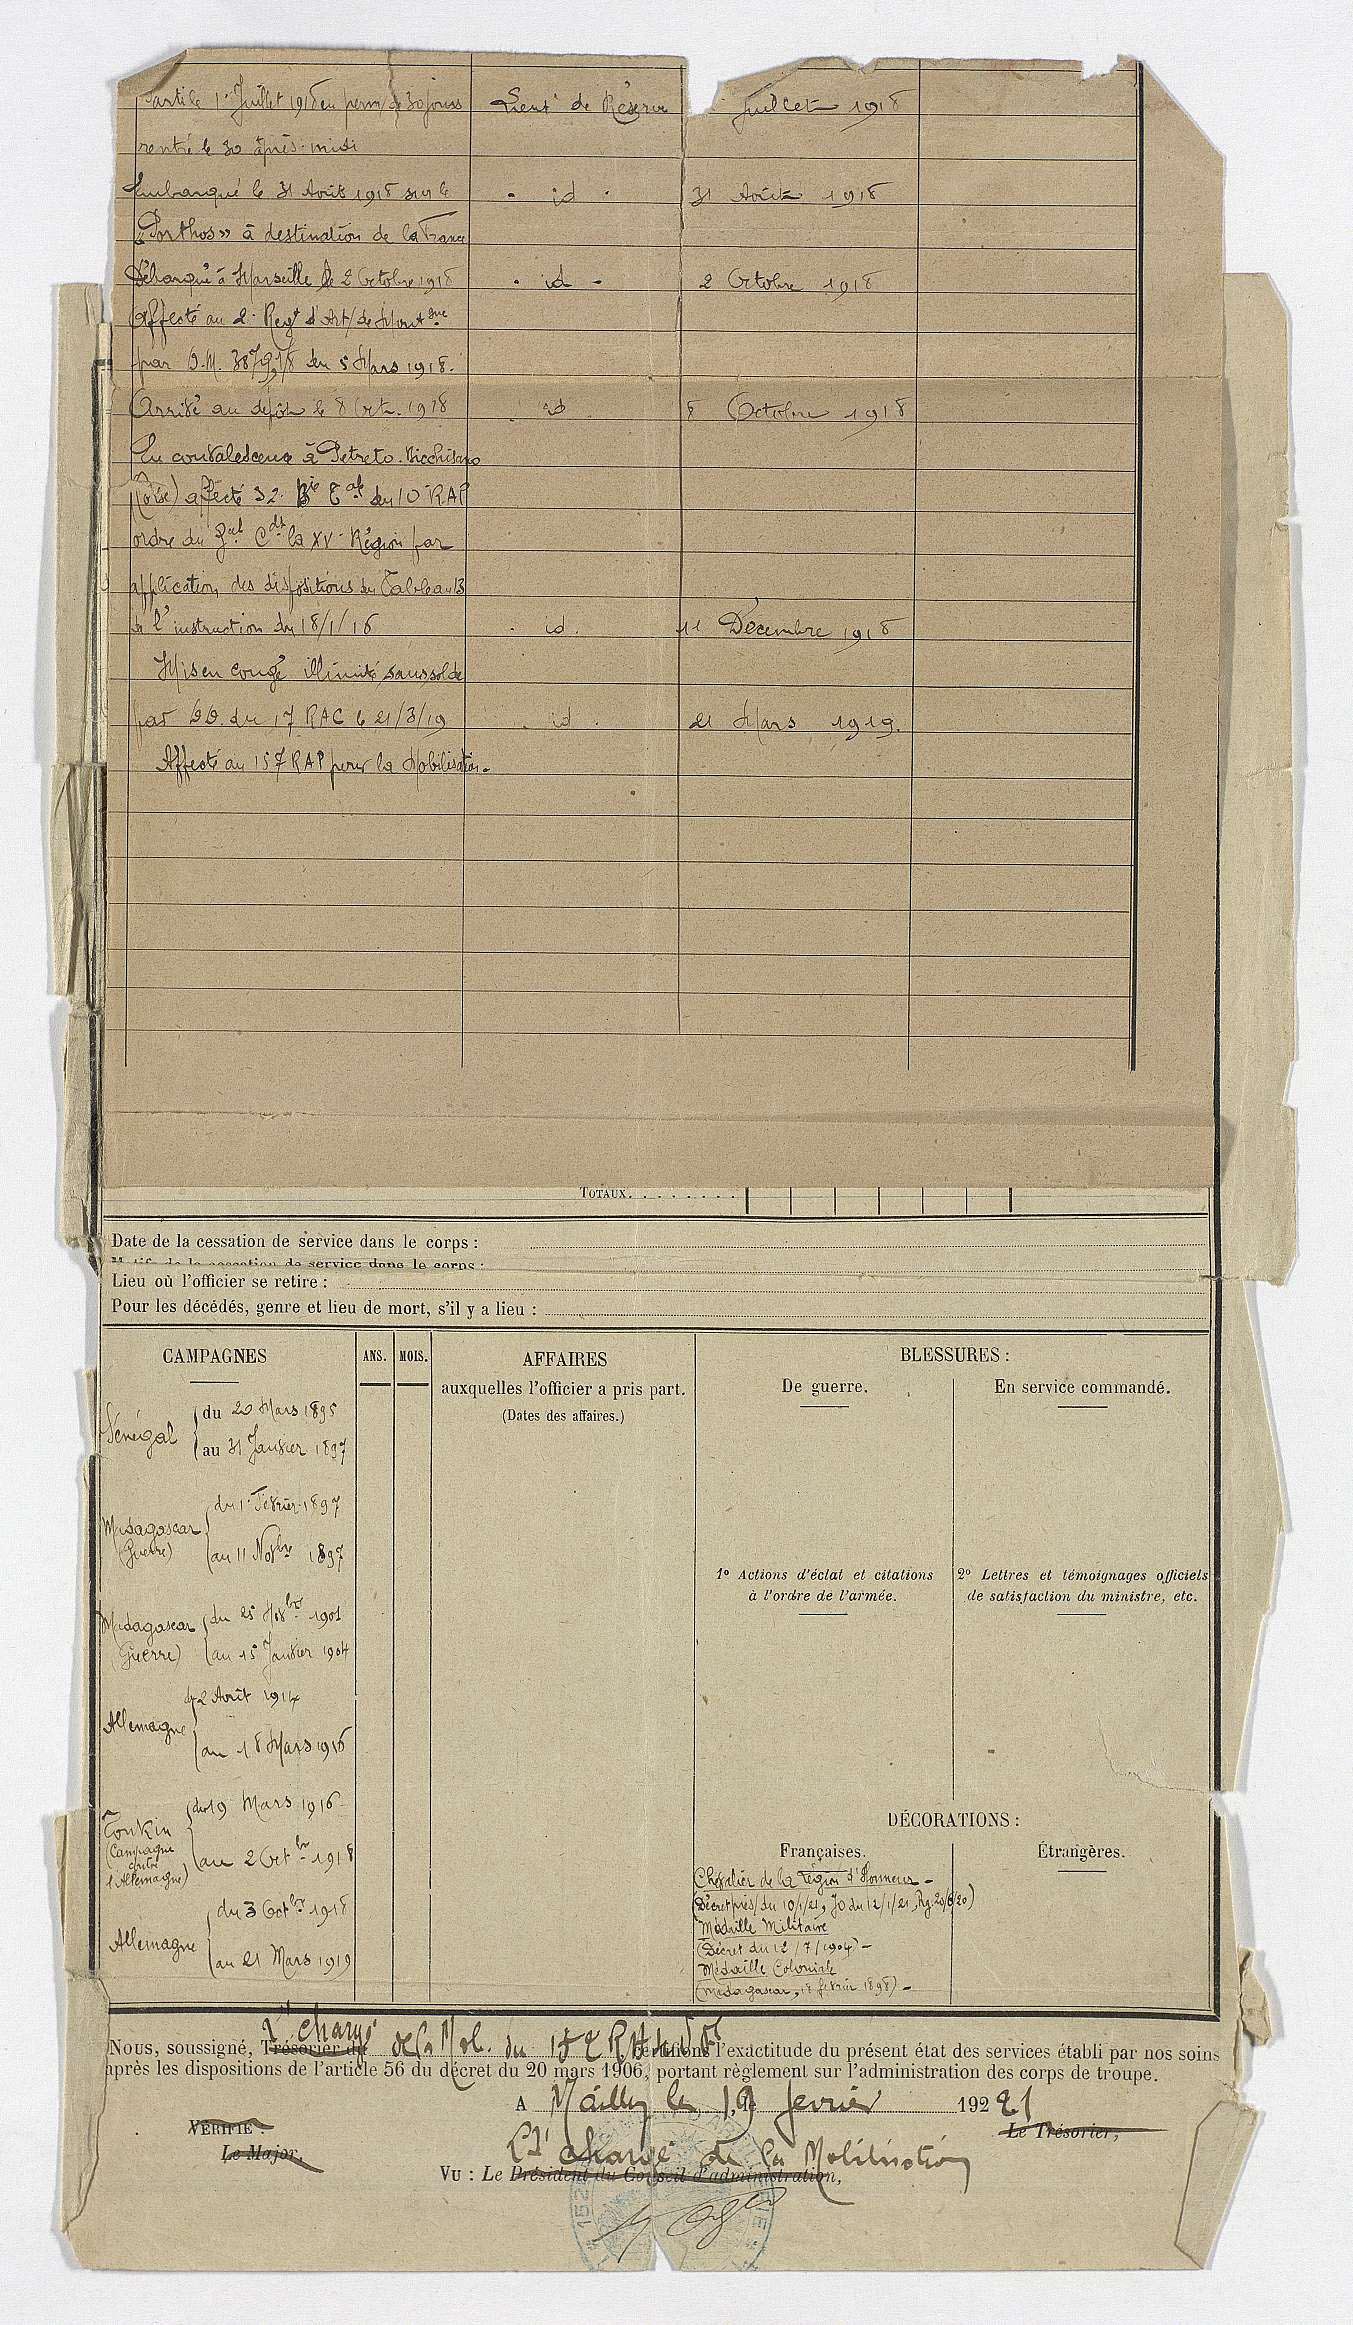 Parti le 1er Juillet 1918 en perm/ de 30 jours Lieut de Réserve Juillet 1918
rentré le 30 après-midi
Embarqué le 31 Août 1918 sur le - id - 31 Août 1918
"Porthos" à destination de la France
Débarqué à Marseille le 2 Octobre 1918 - id - 2 Octobre 1918
Affecté au 2e Regt d'Art/ de Montgne
par D.M. du 5 Mars 1918.
Arrivé au dépôt le 8 Oct. 1918 id 8 Octobre 1918
En convalescence à Petreto-Bicchisano
affecté 32e Bie du 10 RAP
ordre du Gal Cdt la XVe Région par
application des dispositions du Tableau B
de l'instruction du 18/1/16 - id. 11 Décembre 1918
Mis en congé illimité sans solde
par du 17 RAC le 21/3/19 - id - 21 Mars 1919.
Affecté au 157 RAP pour la Mobilisation.
TOTAUX. . . . . . . .
Date de la cessation de service dans le corps :
Motif de la cessation de service dans le corps :
Lieu où l'officier se retire :
Pour les décédés, genre et lieu de mort, s'il y a lieu :
CAMPAGNES
ANS. MOIS.
AFFAIRES
auxquelles l'officier a pris part.
(Dates des affaires.)
BLESSURES :
De guerre. En service commandé.
Sénégal du 20 Mars 1895
au 31 Janvier 1897
Madagascar (Guerre) du 1er Février 1897
au 11 Novbre 1897
Madagascar (Guerre) du 25 1901
au 15 Janvier 1904
Allemagne du 2 Août 1914
au 18 Mars 1916
Tonkin (Campagne contre l'Allemagne) du 19 Mars 1916
au 2 Octbre 1918
Allemagne du 3 Octbre 1918
au 21 Mars 1919
1° Actions d'éclat et citations
à l'ordre de l'armée.
2° Lettres et témoignages officiels
de satisfaction du ministre, etc.
DÉCORATIONS :
Françaises. Étrangères.
Chevalier de la Légion d'Honneur -
(Décret prés/ du 10/1/21, JO du 12/1/21, Rg. 20/6/20)
Médaille Militaire
(Décret du 12/7/1904) -
Médaille Coloniale
(Madagascar, 18 février 1898) -
Lt chargé
Nous, soussigné, Trésorier du de la Mob. du 152 certifions l'exactitude du présent état des services établi par nos soins
après les dispositions de l'article 56 du décret du 20 mars 1906, portant règlement sur l'administration des corps de troupe.
A Mailly le 19 février 192 21
VÉRIFIÉ :
Le Major,
Le Trésorier,
Lt chargé de la Mobilisation
VU : Le Président du Conseil d'administration,
152